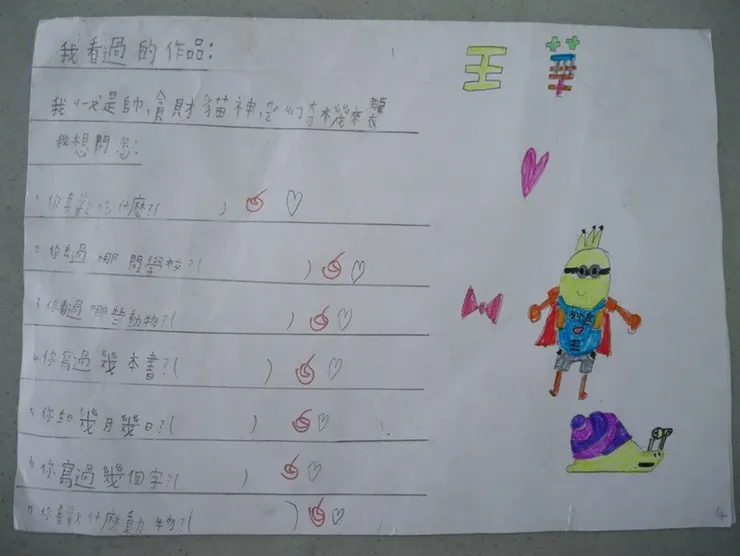 我看過的作品：
我ㄐㄧㄡˋ是帥，貪財貓神，來襲
我想問您：
1. 你喜歡吃什麼？(　　　)
2. 你去過哪間學校？(　　　)
3. 你看過哪些動物？(　　　)
4. 你寫過幾本書？(　　　)
5. 你生日幾月幾日？(　　　)
6. 你寫過幾個字？(　　　)
7. 你喜歡什麼動物？(　　　)
王
4